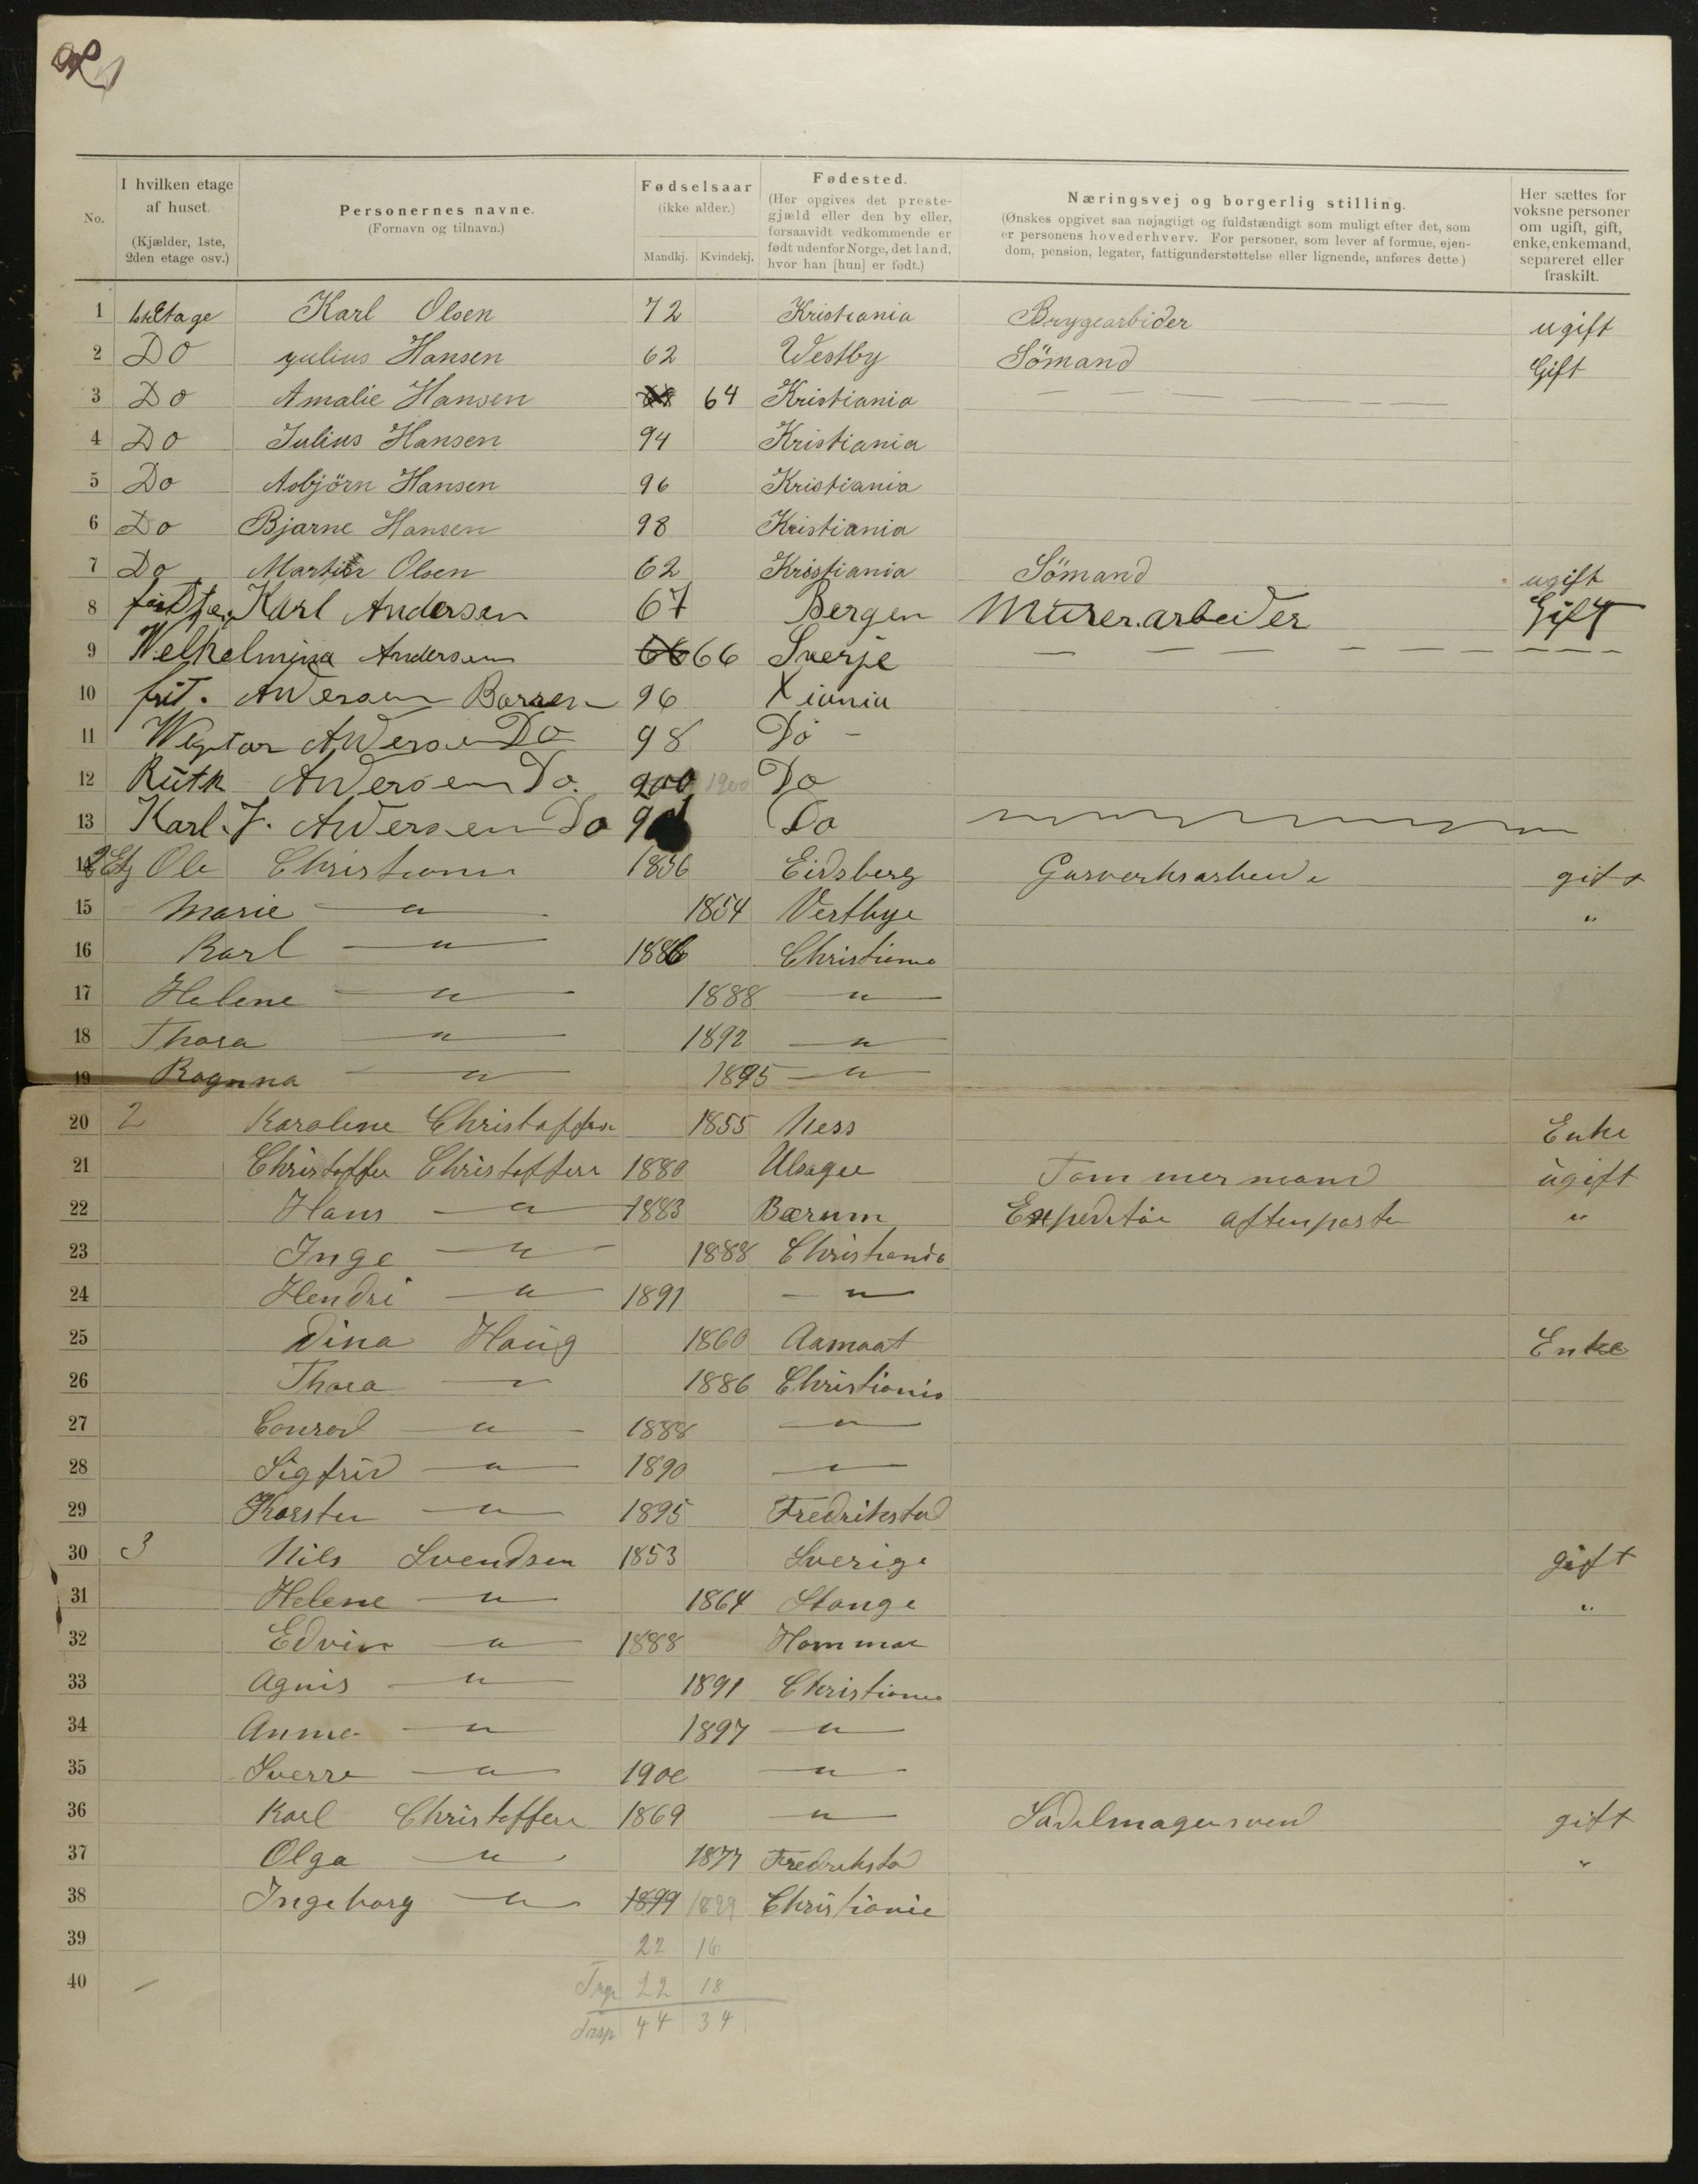 No.
I hvilken etage af huset. (Kjælder, 1ste, 2den etage osv.)
Personernes navne. (Fornavn og tilnavn.)
Fødselsaar (ikke alder.) Mandkj. Kvindekj.
Fødested. (Her opgives det prestegjæld eller den by eller, forsaavidt vedkommende er født udenfor Norge, det land, hvor han [hun] er født.)
Næringsvej og borgerlig stilling. (Ønskes opgivet saa nøjagtigt og fuldstændigt som muligt efter det, som er personens hovederhverv. For personer, som lever af formue, ejendom, pension, legater, fattigunderstøttelse eller lignende, anføres dette)
Her sættes for voksne personer om ugift, gift, enke, enkemand, separeret eller fraskilt.
1 1ste Etage Karl Olsen 72 Kristiania Brygearbider ugift
2 Do Julius Hansen 62 Westby Sömand Gift
3 Do Amalie Hansen 64 Kristiania
4 Do Julius Hansen 94 Kristiania
5 Do Asbjörn Hansen 96 Kristiania
6 Do Bjarne Hansen 98 Kristiania
7 Do Olsen 62 Kristiania Sömand ugift
8 Karl Andersen 67 Bergen Murer.arbeider Gift
9 Welhelmina Andersen 66 Sverje
10 Andersen 96 Xiania
11 Andersen Do 98 Do -
12 Ruth Andersen Do. 1900 Do
13 Karl. J. Andersen Do Do
14 2 Etg Ole Christiansen 1856 Eidsberg Gasverksarbeide gift
15 Marie — " — 1854 Vestbye "
16 Karl — " — 1886 Christiania
17 Helene — " — 1888 — " —
18 Thora — " — 1892 — " —
19 Ragnna — " — 1895 — " —
20 2 Karoline Christoffersen 1855 Ness Enke
21 Christoffer Christoffersen 1880 Tommermand ugift
22 Hans — " — 1883 Bærum Expeditør aftenposten "
23 Inge — " — 1888 Christiania
24 Hendri — " — 1891 — " —
25 Dina Haug 1860 Aamaat Enke
26 Thora — " — 1886 Christiania
27 Conrad — " — 1888 — " —
28 Sigfrid — " — 1890 — " —
29 Karsten — " — 1895 Fredrikstad
30 3 Nils Svendsen 1853 Sverige gift
31 Helene — " — 1864 Stange "
32 Edvin — " — 1888 Hammar
33 Agnis — " — 1891 Christiania
34 Anna — " — 1897 — " —
35 Sverre — " — 1900 — " —
36 Karl Christoffersen 1869 — " — Sadelmagersvend gift
37 Olga — " — 1877 Fredrikstad "
38 Ingeborg — " — 1899 1899 Christiania
39 22 16
40 22 18
44 34